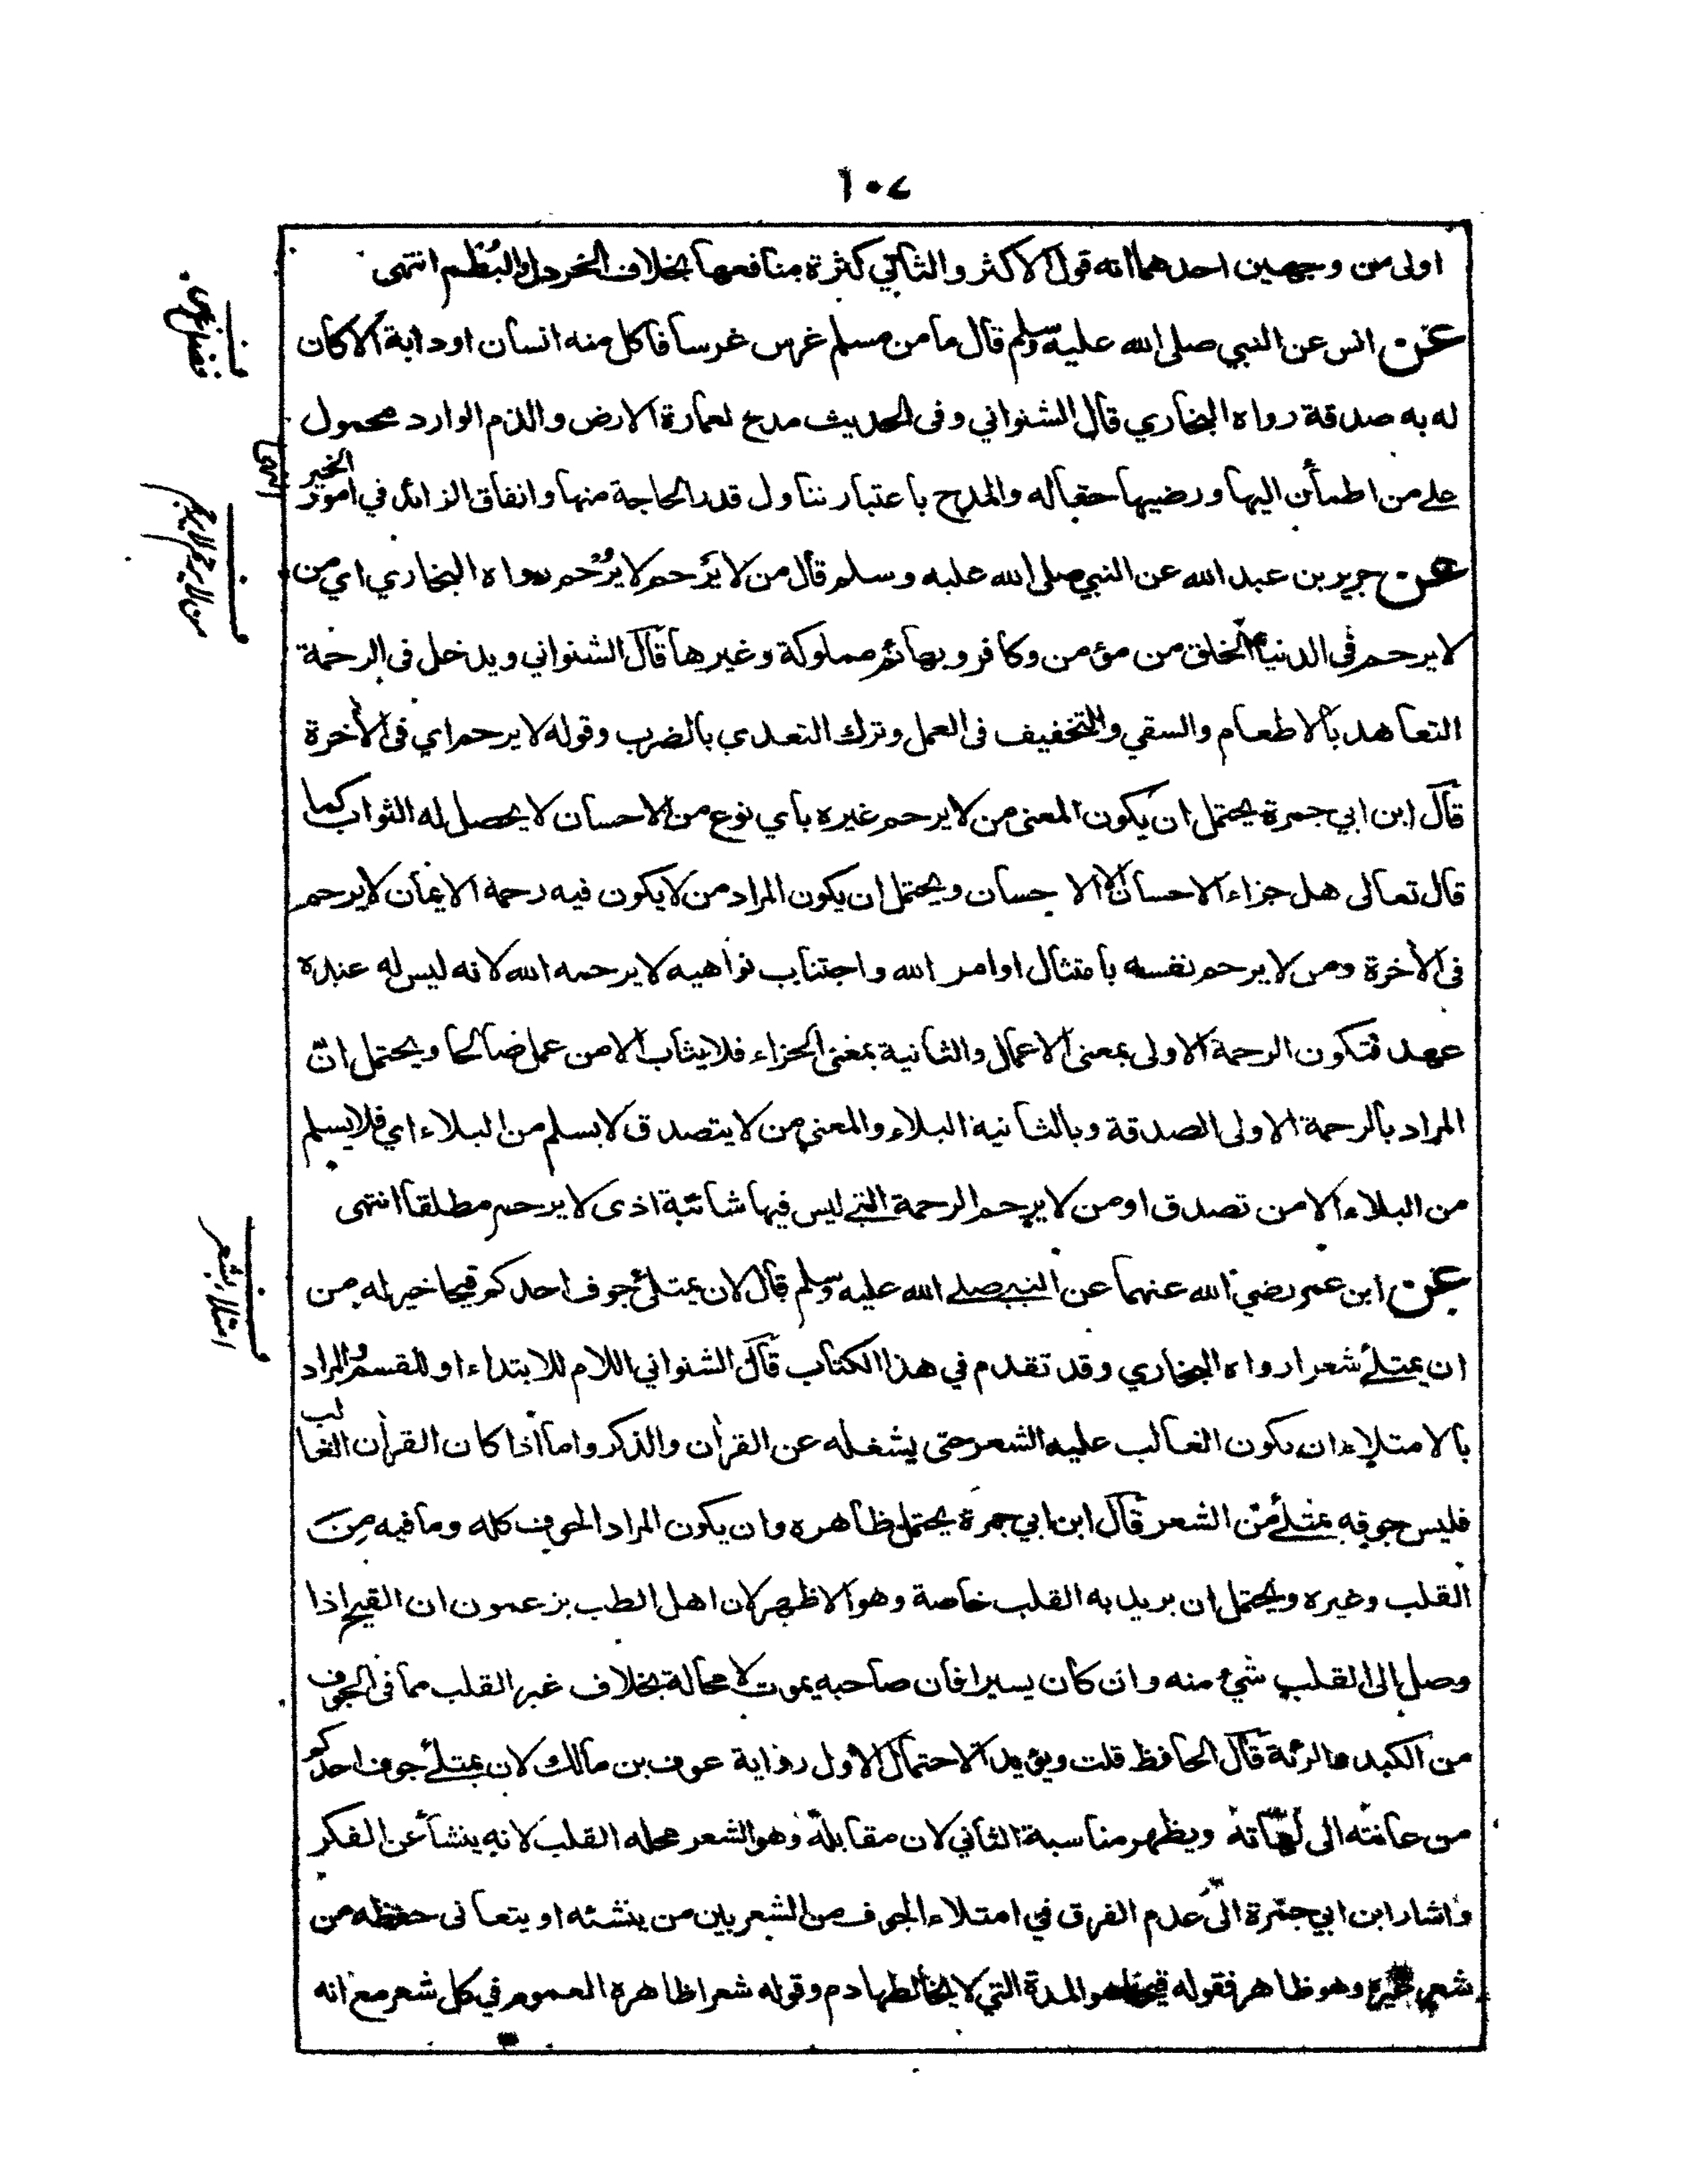 ١٠٧
اولى من وجهين احدهما انه قول الاكثر والثاني كثرة منافعها بخلاف الخردل والبُطُم انتهى
عن انس عن النبي صلى الله عليه وسلم قال ما من مسلم غرس غرسا فاكل منه انسان او دابة الا كان
له به صدقة رواه البخاري قال الشنواني وفى الحديث مدح لعمارة الارض والذم الوارد محمول
على من اطمأن اليها ورضيها حقباله والمدح باعتبار تناول قدر الحاجة منها وانفاق الزائد في امور الخير انتهى
عن جرير بن عبد الله عن النبي صلى الله عليه وسلم قال من لا يَرحم لا يُرحم رواه البخاري اي من
لا يرحم فى الدنيا الخلق من مؤمن وكافر وبهائم مملوكة وغيرها قال الشنواني ويدخل فى الرحمة
التعاهد بالاطعام والسقي والتخفيف فى العمل وترك التعدي بالضرب وقوله لا يرحم اي فى الأخرة
قال ابن ابي جمرة يحتمل ان يكون المعنى من لا يرحم غيره باي نوع من الاحسان لا يحصل له الثواب كما
قال تعالى هل جزاء الاحسان الا الاحسان ويحتمل ان يكون المراد من لا يكون فيه رحمة الايمان لا يرحم
فى الأخرة ومن لا يرحم نفسه بامتثال اوامر الله واجتناب نواهيه لا يرحمه الله لانه ليس له عنده
عهد فتكون الرحمة الاولى بمعنى الاعمال والثانية بمعنى الجزاء فلا يثاب الا من عمل صالحا ويحتمل انّ
المراد بالرحمة الاولى الصدقة وبالثانية البلاء والمعنى من لا يتصدق لا يسلم من البلاء اي فلا يسلم
من البلاء الا من تصدق او من لا يرحم الرحمة التي ليس فيها شائبة اذى لا يرحم مطلقا انتهى
عن ابن عمر رضي الله عنهما عن النبي صلى الله عليه وسلم قال لان يمتلئ جوف احدكم قيحا خير له من
ان يمتلئ شعرا رواه البخاري وقد تقدم في هذا الكتاب قال الشنواني اللام للابتداء او للقسم والمراد
بالامتلاء ان يكون الغالب عليه الشعر حتى يشغله عن القرأن والذكر واما اذا كان القرأن الغالب
فليس جوفه بممتلئ من الشعر قال ابن ابي جمرة يحتمل ظاهره وان يكون المراد الجوف كله وما فيه من
القلب وغيره ويحتمل ان يريد به القلب خاصة وهو الاظهر لان اهل الطب يزعمون ان القيح اذا
وصل الى القلب شيئ منه وان كان يسيرا فان صاحبه يموت لا محالة بخلاف غير القلب مما فى الجوف
من الكبد والرئة قال الحافظ قلت ويؤيد الاحتمال الاول رواية عوف بن مالك لان يمتلئ جوف احدكم
من عانته الى لهاته ويظهر مناسبة الثاني لان مقابله وهو الشعر محله القلب لانه ينشأ عن الفكر
واشار ابن ابي جمرة الى عدم الفرق في امتلاء الجوف من الشعر بين من ينشئه او يتعانى حفظه من
شعر غيره وهو ظاهر فقوله قيحا هو المدة التي لا يخالطها دم وقوله شعرا ظاهره العموم في كل شعر مع انه